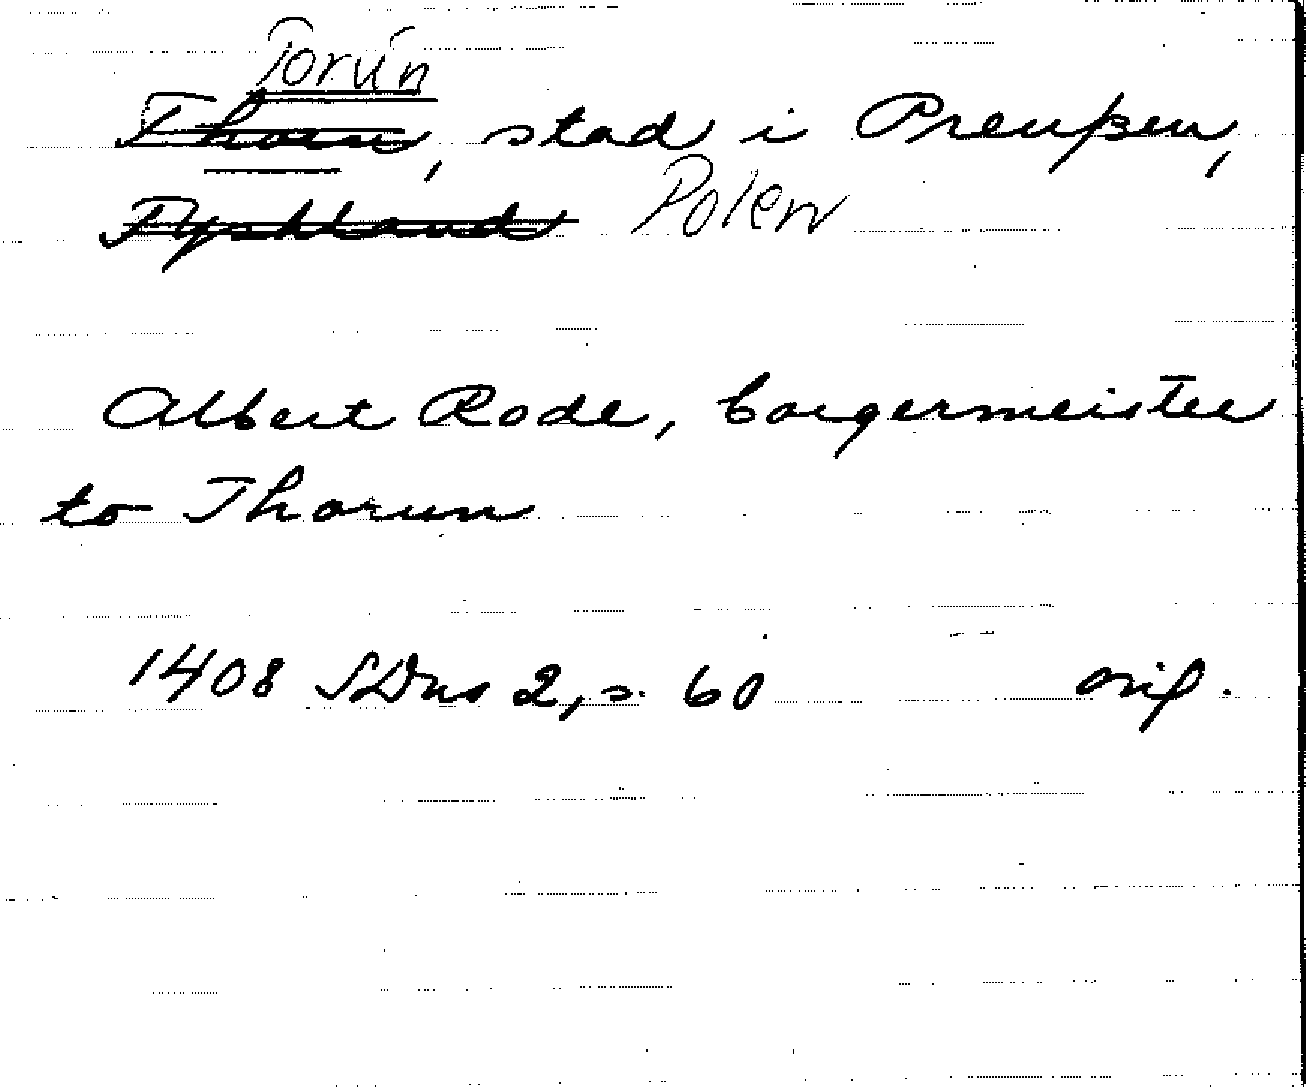 Torún
Thorn, stad i Preußen,
Tyskland Polen
Albert Rode, borgermeister
to Thorun
1408 SDns 2, s. 60 orig.